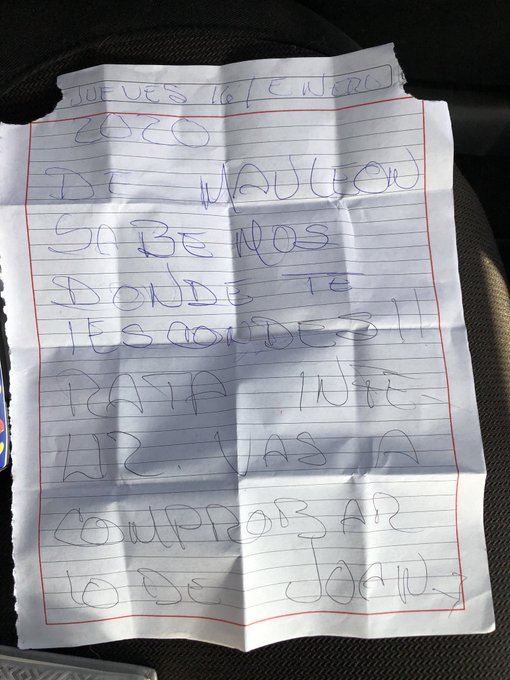 JUEVES 16/ENERO
2020
DE MAULEON
SABEMOS
DONDE TE
IESCONDES!!
RATA INFE-
LIZ. VAS A
COMPROBAR
LO DE JOEN